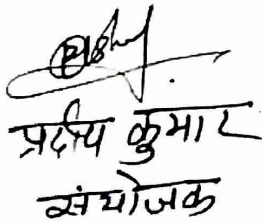 प्रदीप कुमार
संयोजक